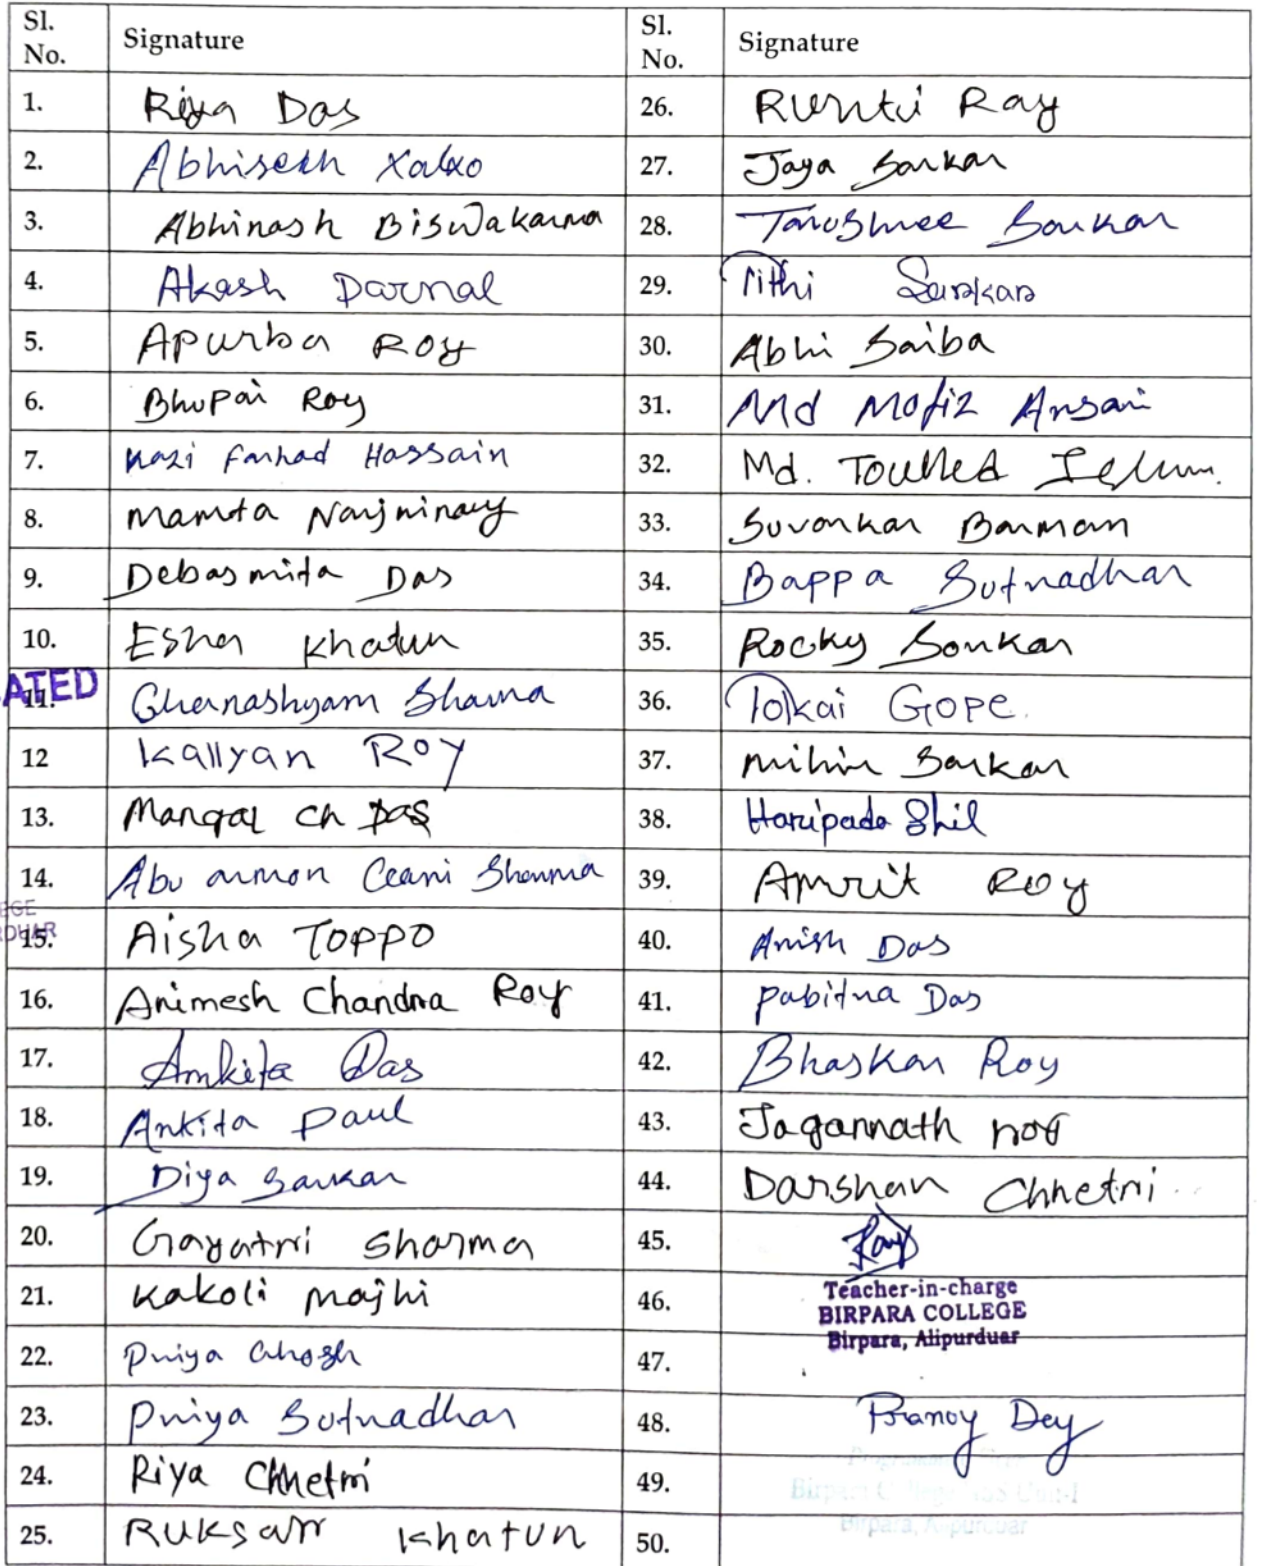 Sl. No. Signature Sl. No. Signature
1. Riya Das 26. Runti Ray
2. Abhisekh Xalxo 27. Jaya Sarkar
3. Abhinash Biswakarma 28. Tanushree Sarkar
4. Akash Darnal 29. Tithi Sarkar
5. Apurba Roy 30. Abhi Saiba
6. Bhupai Roy 31. Md Mofiz Ansari
7. Kazi Farhad Hossain 32. Md.
8. Mamta 33. Suvankar Barman
9. Debasmita Das 34. Bappa Sutradhar
10. Esha Khatun 35. Rocky Sarkar
ATED
11. Ghanashyam Sharma 36. Tokai Gope.
12 Kallyan Roy 37. Mihir Sarkar
13. Mangal Ch Das 38. Haripada Shil
14. Abu Sharma 39. Amrit Roy
EGE
15. Aisha Toppo 40. Anish Das
16. Animesh Chandra Roy 41. Pabitra Das
17. Ankita Das 42. Bhaskar Roy
18. Ankita Paul 43. Jagannath
19. Diya Sarkar 44. Darshan Chhetri
20. Gayatri Sharma 45.
21. Kakoli Majhi 46. Teacher-in-charge
BIRPARA COLLEGE
Birpara, Alipurduar
22. Priya Ghosh 47.
23. Priya Sutradhar 48. Pranoy Dey
24. Riya Chhetri 49.
25. Ruksar Khatun 50.
Birpara, Alipurduar